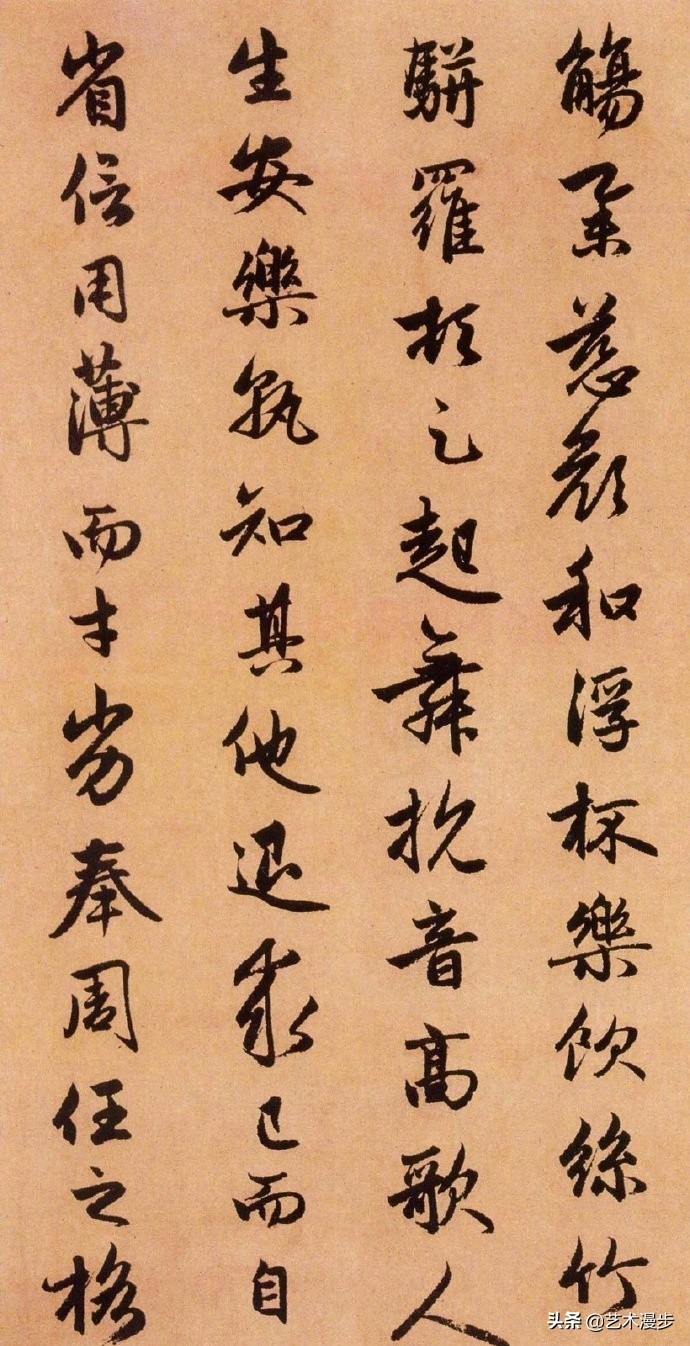 觴舉慈顔和浮杯樂飲絲竹
駢羅頓足起舞抗音高歌人
生安樂孰知其他退求己而自
省信用薄而才劣奉周任之格
头条 @艺术漫步